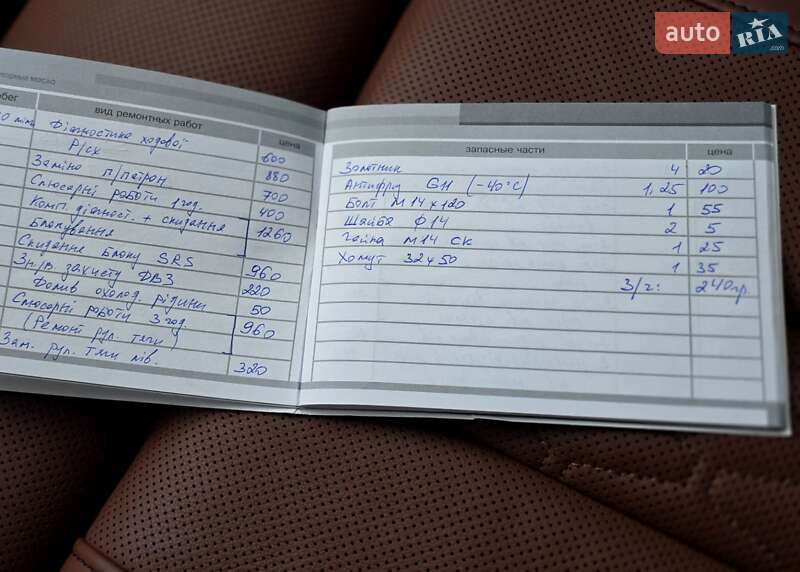 auto RIA .com
моторные масла
вид ремонтных работ цена
Діагностика ходової
Р/ск 600
Заміна п/патрон 880
Слюсарні роботи 1 год. 700
Комп. діагност. + скидання 400
Блокування 1260
Скидання блоку SRS
Зн./в захисту ДВЗ 960
Долив охолод. рідини 220
Слюсарні роботи 3 год. 50
(Ремонт рул. тяги) 960
Зам. рул. тяги лів. 320
запасные части цена
Золотник 4 20
Антифриз GH (-40°C) 1,25 100
Болт М14х120 1 55
Шайба Ф14 2 5
Гайка М14 СК 1 25
Хомут 32х50 1 35
З/ч: 240гр.